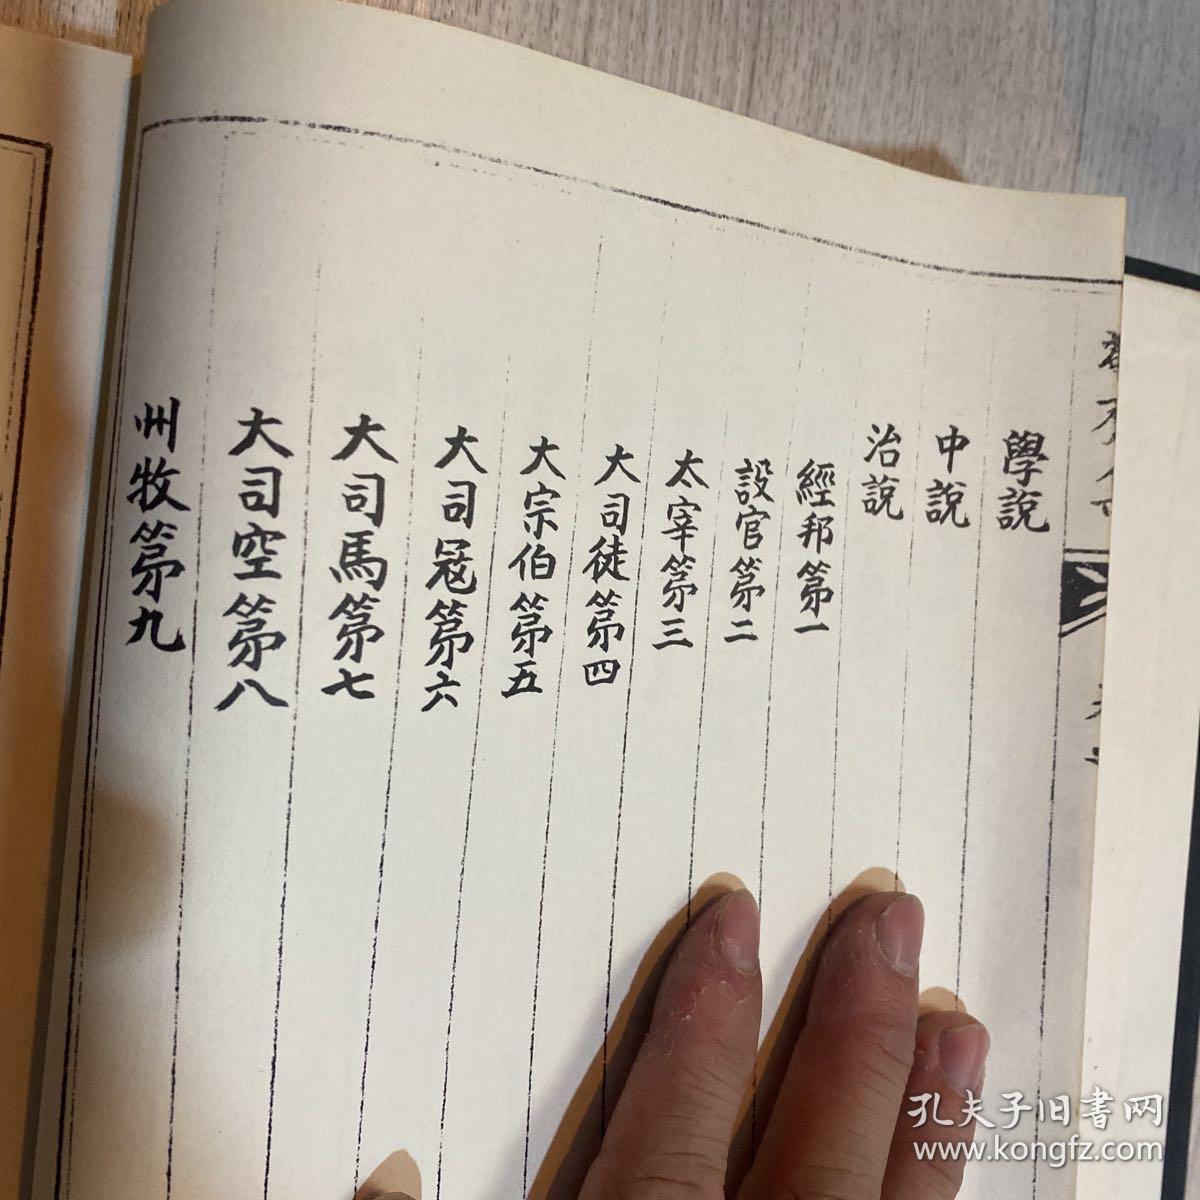 學說
中說
治說
經邦第一
設官第二
太宰第三
大司徒第四
大宗伯第五
大司寇第六
大司馬第七
大司空第八
州牧第九
孔夫子旧書网
www.kongfz.com